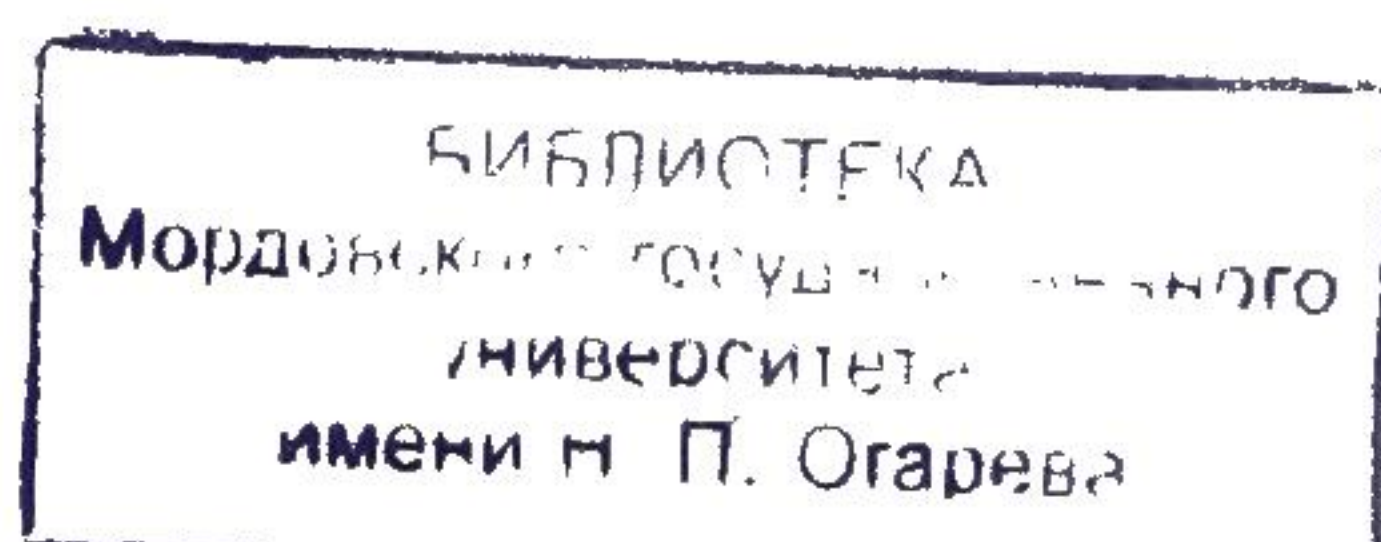 БИБЛИОТЕКА
Мордовского государственного
университета
имени Н. П. Огарева